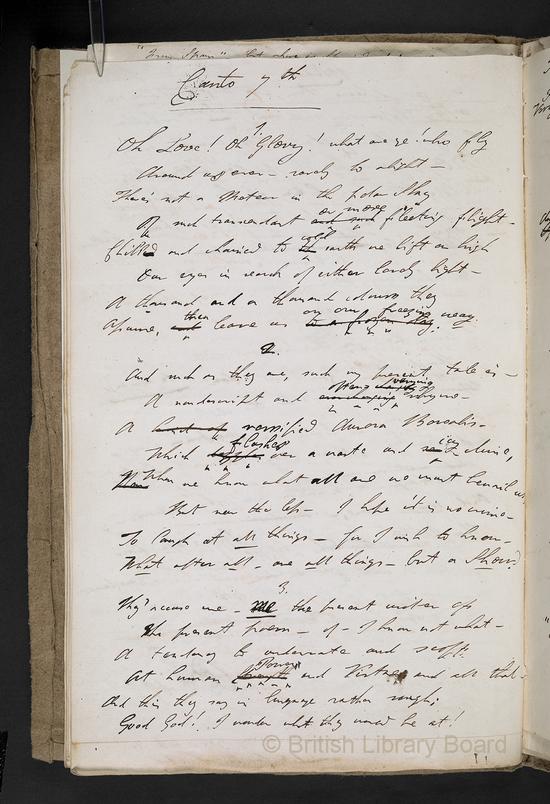 Canto 7th
1.
Oh Love! Oh Glory! what are ye! who fly
Around us ever - rarely to alight -
There's not a Meteor in the polar Sky
Of such transcendant and such or more fleeting flight -
Chilled and chained to cold earth we lift on high
Our eyes in search of either lovely light -
A thousand and a thousand colours they
Assume, then leave us on our freezing way.
2.
And such as they are, such my present tale is -
A nondescript and ever varying rhyme -
A versified Aurora Borealis -
Which flashes over a waste and icy clime,
When we know what all are we must bewail us,
But ne'er the less - I hope it is no crime -
To laugh at all things - for I wish to know -
What after all - are all things - but a Show?
3.
They accuse me - me the present writer of
The present poem - of - I know not what -
A tendency to underrate and scoff
At human Power and Virtue and all that -
And this they say in language rather rough;
Good God! I wonder what they would be at!
© British Library Board